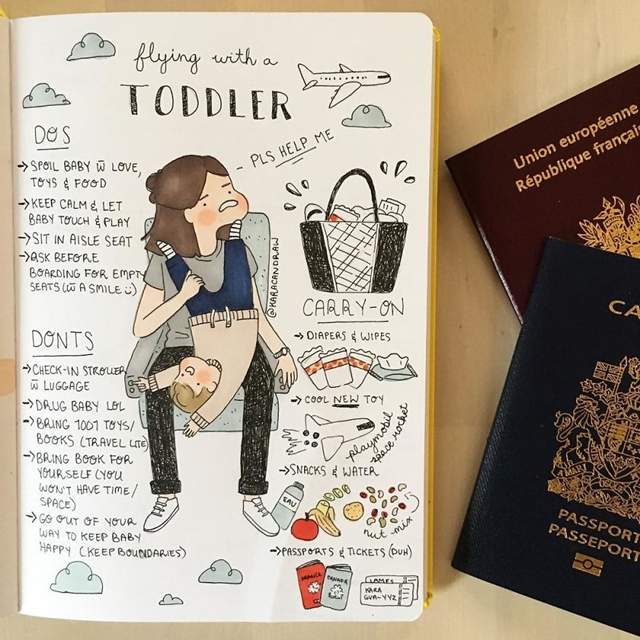 flying with a
TODDLER
PLS HELP ME
DOS
→ SPOIL BABY w̄ LOVE,
TOYS & FOOD
→ KEEP CALM & LET
BABY TOUCH & PLAY
→ SIT IN AISLE SEAT
→ ASK BEFORE
BOARDING FOR EMPTY
SEATS (w̄ A SMILE ☺)
DONTS
→ CHECK-IN STROLLER
w̄ LUGGAGE
→ DRUG BABY LOL
→ BRING 1001 TOYS/
BOOKS (TRAVEL LITE)
→ BRING BOOK FOR
YOURSELF (YOU
WON'T HAVE TIME/
SPACE)
→ GO OUT OF YOUR
WAY TO KEEP BABY
HAPPY (KEEP BOUNDARIES)
@KARACANDRAW
CARRY-ON
→ DIAPERS & WIPES
→ COOL NEW TOY
playmobil
space rocket
→ SNACKS & WATER
EAU
nut mix
→ PASSPORTS & TICKETS (DUH)
FRANCE
CANADA
KARA
GVA-YYZ
Union européenne
République françai
CA
PASSPORT
PASSEPORT